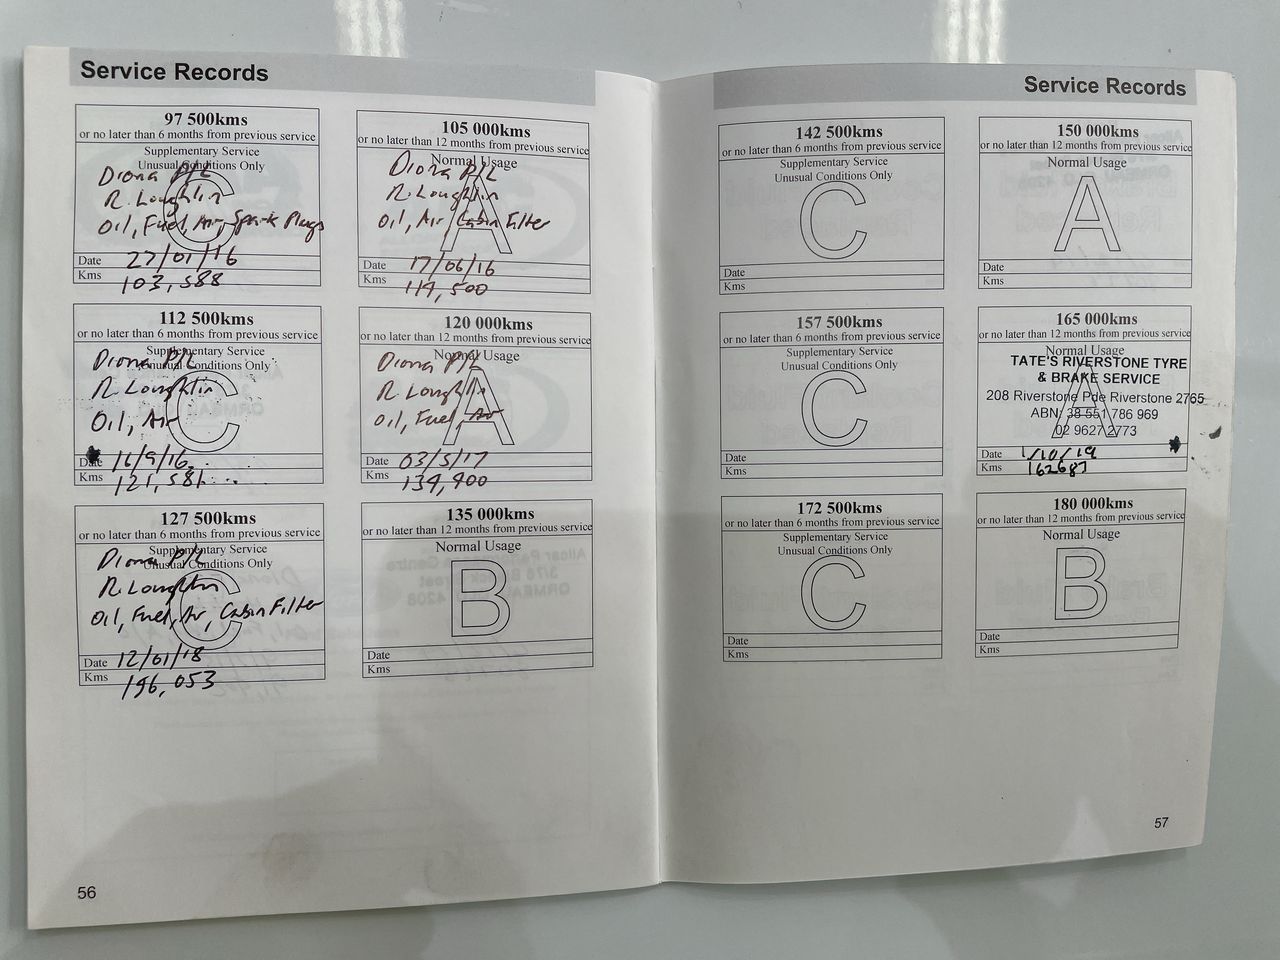 Service Records
97 500kms
or no later than 6 months from previous service
Supplementary Service
Unusual Conditions Only
Diona P/L
R. Loughlin
Oil, Fuel, Air, Spark Plugs
Date 27/01/16
Kms 103,588
105 000kms
or no later than 12 months from previous service
Normal Usage
A
Diona P/L
R. Loughlin
Oil, Air, Cabin Filter
Date 17/06/16
Kms 114,500
112 500kms
or no later than 6 months from previous service
Supplementary Service
Unusual Conditions Only
C
Diona P/L
R. Loughlin
Oil, Air
Date 16/9/16
Kms 121,581
120 000kms
or no later than 12 months from previous service
Normal Usage
A
Diona P/L
R. Loughlin
Oil, Fuel, Air
Date 03/5/17
Kms 134,400
127 500kms
or no later than 6 months from previous service
Supplementary Service
Unusual Conditions Only
C
Diona P/L
R. Loughlin
Oil, Fuel, Air, Cabin Filter
Date 12/01/18
Kms 146,053
135 000kms
or no later than 12 months from previous service
Normal Usage
B
Date
Kms
56
Service Records
142 500kms
or no later than 6 months from previous service
Supplementary Service
Unusual Conditions Only
C
Date
Kms
150 000kms
or no later than 12 months from previous service
Normal Usage
A
Date
Kms
157 500kms
or no later than 6 months from previous service
Supplementary Service
Unusual Conditions Only
C
Date
Kms
165 000kms
or no later than 12 months from previous service
Normal Usage
A
TATE'S RIVERSTONE TYRE
& BRAKE SERVICE
208 Riverstone Pde Riverstone 2765
ABN: 38 551 786 969
02 9627 2773
Date 1/10/19
Kms 162687
172 500kms
or no later than 6 months from previous service
Supplementary Service
Unusual Conditions Only
C
Date
Kms
180 000kms
or no later than 12 months from previous service
Normal Usage
B
Date
Kms
57